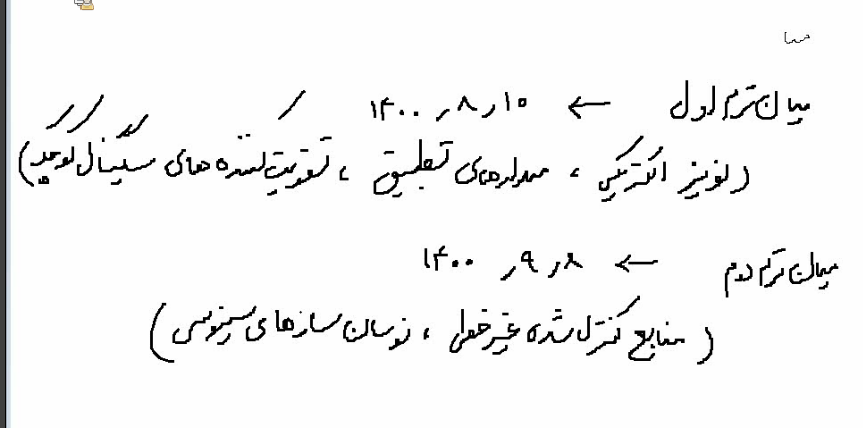 میان ترم اول ← ۱۰ ر ۸ ر ۱۴۰۰
(نویز الکتریکی ، مدارهای تطبیق ، تقویت کننده های سیگنال کوچک)
میان ترم دوم ← ۸ ر ۹ ر ۱۴۰۰
(منابع کنترل شده غیرخطی ، نوسان سازهای سینوسی)